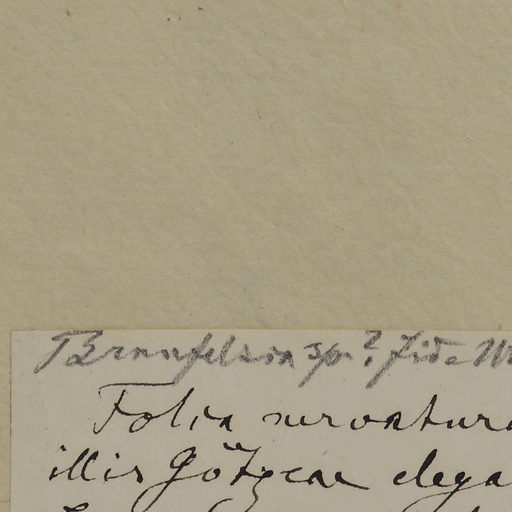 Brunfelsia sp.? fide
Folia nervatura
illis Götzeae elega